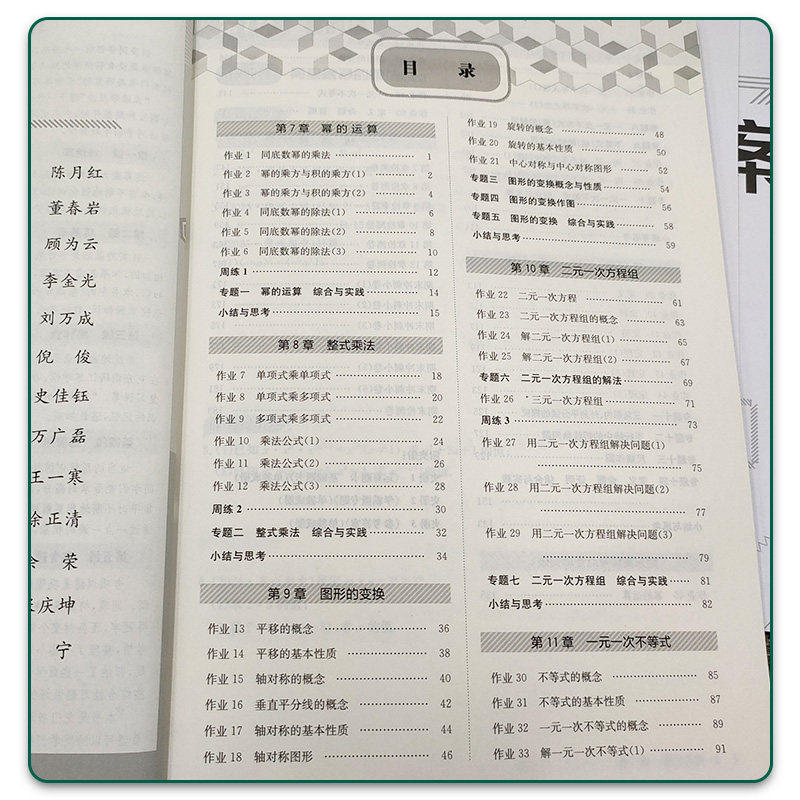 陈月红
董春岩
顾为云
李金光
刘万成
倪 俊
史佳钰
万广磊
王一寒
徐正清
荣
张庆坤
宁
目 录
第7章 幂的运算
作业1 同底数幂的乘法 …… 1
作业2 幂的乘方与积的乘方(1) …… 2
作业3 幂的乘方与积的乘方(2) …… 4
作业4 同底数幂的除法(1) …… 6
作业5 同底数幂的除法(2) …… 8
作业6 同底数幂的除法(3) …… 10
周练1 …… 12
专题一 幂的运算 综合与实践 …… 14
小结与思考 …… 15
第8章 整式乘法
作业7 单项式乘单项式 …… 18
作业8 单项式乘多项式 …… 20
作业9 多项式乘多项式 …… 22
作业10 乘法公式(1) …… 24
作业11 乘法公式(2) …… 26
作业12 乘法公式(3) …… 28
周练2 …… 30
专题二 整式乘法 综合与实践 …… 32
小结与思考 …… 34
第9章 图形的变换
作业13 平移的概念 …… 36
作业14 平移的基本性质 …… 38
作业15 轴对称的概念 …… 40
作业16 垂直平分线的概念 …… 42
作业17 轴对称的基本性质 …… 44
作业18 轴对称图形 …… 46
作业19 旋转的概念 …… 48
作业20 旋转的基本性质 …… 50
作业21 中心对称与中心对称图形 …… 52
专题三 图形的变换概念与性质 …… 54
专题四 图形的变换作图 …… 56
专题五 图形的变换 综合与实践 …… 58
小结与思考 …… 59
第10章 二元一次方程组
作业22 二元一次方程 …… 61
作业23 二元一次方程组的概念 …… 63
作业24 解二元一次方程组(1) …… 65
作业25 解二元一次方程组(2) …… 67
专题六 二元一次方程组的解法 …… 69
作业26 *三元一次方程组 …… 71
周练3 …… 73
作业27 用二元一次方程组解决问题(1)
…… 75
作业28 用二元一次方程组解决问题(2)
…… 77
作业29 用二元一次方程组解决问题(3)
…… 79
专题七 二元一次方程组 综合与实践 …… 81
小结与思考 …… 82
第11章 一元一次不等式
作业30 不等式的概念 …… 85
作业31 不等式的基本性质 …… 87
作业32 一元一次不等式的概念 …… 89
作业33 解一元一次不等式(1) …… 91